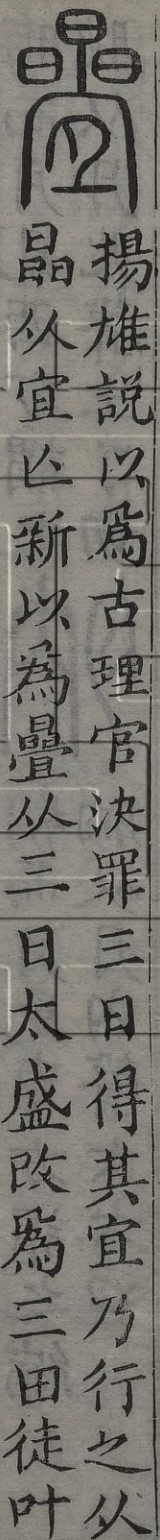 疊
揚雄說以爲古理官決罪三日得其宜乃行之从
晶从宜亾新以爲疊从三日太盛改爲三田徒叶